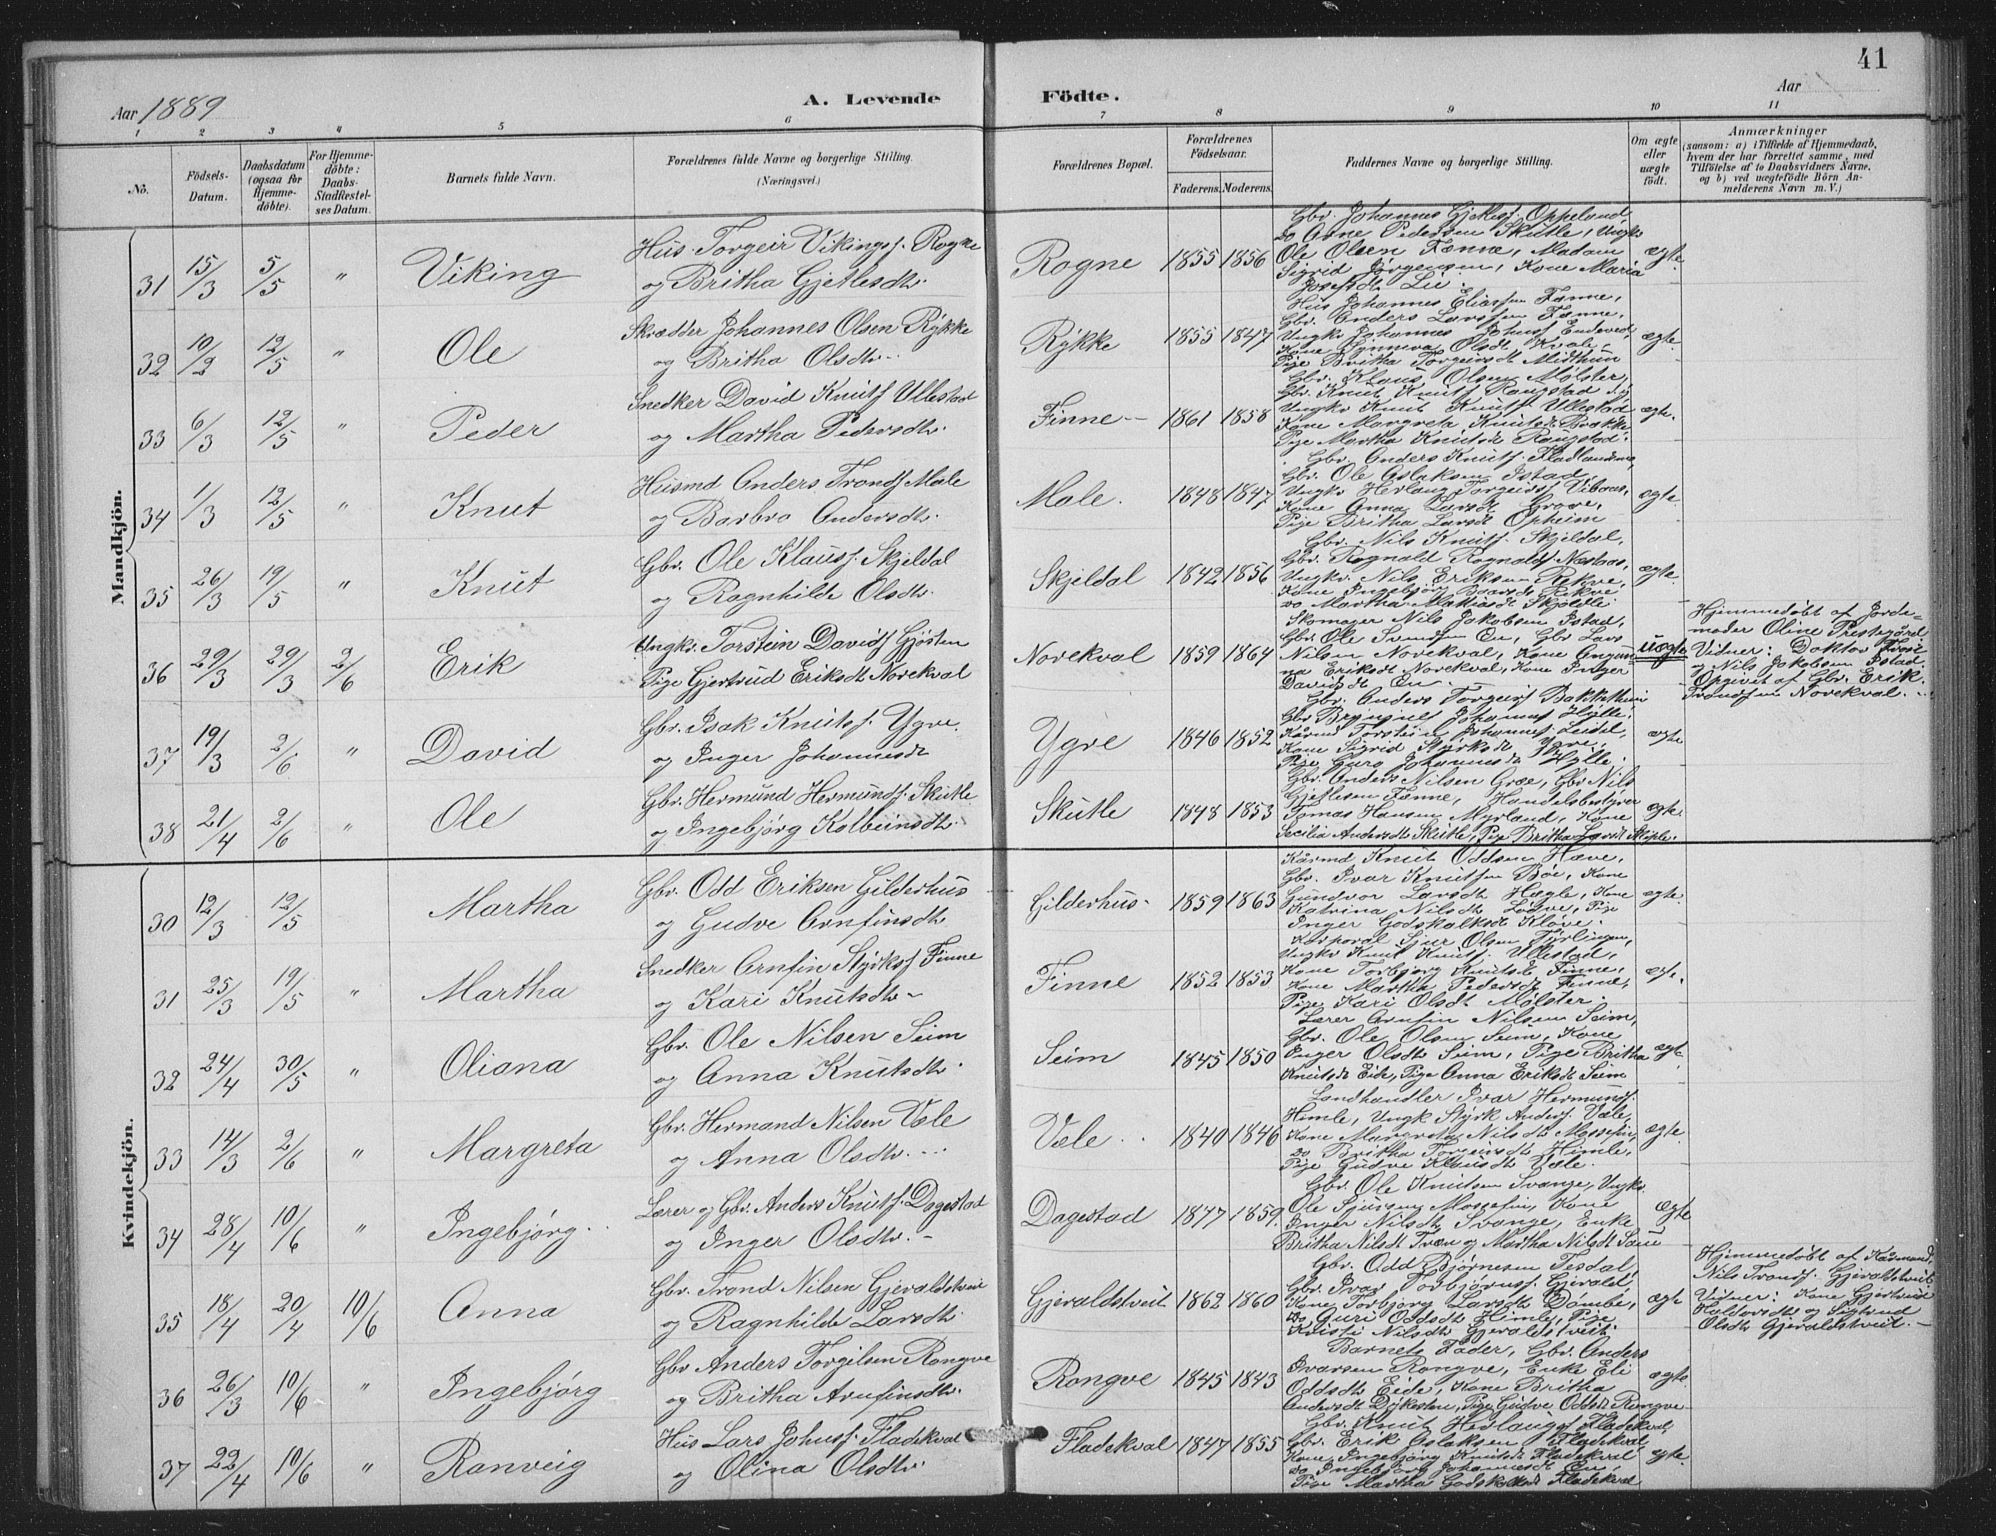 41
Aar 1889
A. Levende Födte.
Aar
1 2 3 4 5 6 7 8 9 10 11
No.
Födsels-Datum.
Daabsdatum (ogsaa for Hjemme-döbte).
For Hjemme-döbte: Daabs-Stadfæstel-ses Datum.
Barnets fulde Navn.
Forældrenes fulde Navne og borgerlige Stilling.
(Næringsvei.)
Forældrenes Bopæl.
Forældrenes Födselsaar.
Faderens. Moderens.
Faddernes Navne og borgerlige Stilling.
Om ægte eller uægte födt.
Anmærkninger
(saasom: a) i Tilfælde af Hjemmedaab,
hvem der har forrettet samme, med
Tilföielse af to Daabsvidners Navne,
og b) ved uægtefödte Börn An-
melderens Navn m. V.)
Mandkjön.
31 15/3 5/5 " Viking
Hus. Torgeir Vikingsf. Rogne
og Britha Gjetlesdtr.
Rogne 1855 1856
Gbr. Johannes Gjetlesf. Oppeland,
Do Arne Pedersen Skutle, Ungkr
Ole Olsen Fænne, Madam
Sigrid Jørgensen, Kone Maria
Josefsdt Lie.
ægte
32 10/2 12/5 " Ole
Skrædder Johannes Olsen Rykke
og Britha Olsdtr.
Rykke 1855 1847
Hus Johannes Eliassen Fænne,
Gbr. Anders Larssen Fænne,
Ungkr Johannes Johnsf Endeved,
Kone Synneva Olsdt Kvale,
Pige Britha Torgeirsdt Midthun
ægte
33 6/3 12/5 " Peder
Snedker David Knutsf Ullestad
og Martha Pedersdtr.
Finne 1861 1858
Gbr. Klaus Olsen Mølster,
Gbr. Knut Knutsf Raugstad,
Ungkr Knut Knutsf. Ullestad
Kone Margreta Knutsdt Brække
Pige Martha Knutsdt Raugstad.
ægte
34 1/3 12/5 " Knut
Husmd Anders Trondsf Male
og Barbro Andersdtr.
Male. 1848 1847
Gbr. Anders Knutsf. Fladlandsmo,
Gbr. Ole Aslaksen Istad
Ungkr Herlaug Torgeirsf Viboas,
Kone Anna Larsdt Grove,
Pige Britha Larsdt Opheim
ægte
35 26/3 19/5 " Knut
Gbr. Ole Klausf. Skjeldal
og Ragnhilde Olsdtr.
Skjeldal 1842 1856
Gbr. Nils Knutsf. Skjeldal,
Gbr. Rognald Rognaldsf Næstaas,
Ungkr. Nils Eriksen Rekve,
Kone Ingebjør Baarsdt Rekve
Do Martha Mathiasdt Skjeldle
ægte.
36 29/3 29/3 2/6 Erik
Ungkr. Torstein Davidsf Gjøsten
Pige Gjertrud Eriksdt Norekval
Norekval 1859 1864
Skomager Nils Jakobsen Istad,
Gbr. Ole Svendsen En, Gbr Lars
Nilsen Norekval, Kone Anguun-
na Eriksdt Norekval, Kone Inger
Davidsdt En
uægte
Hjemmedøbt af Jorde-
moder Oline Prestegård
Vitner: Doktor
og Nils Jakobsen Istad.
Opgivet af Gbr. Erik
Trondsen Norekval.
37 19/3 2/6 " David
Gbr. Isak Knutsf. Ygre.
og Inger Johannesdt
Ygre 1846 1852
Gbr. Anders Torgeirsf Bakkethun
Gbr Brynjulf Johannesf Hylle,
Kårmd Torstein Johannesf Leidal,
Kone Sigrid Styrksdt Ygre,
Pige Guro Johannesdt Hylle.
ægte
38 21/4 2/6 " Ole
Gbr. Hermund Hermundsf. Skutle
og Ingebjørg Kolbeinsdtr.
Skutle 1848 1853
Gbr. Anders Nilsen Græe, Gbr Nils
Gjetlesen Fænne, Handelsbestyrer
Tomas Hansen Myrland, Kone
Secilia Andersdt Skutle, Pige Britha Larsdt Skiple.
ægte.
Kvindekjön.
30 12/3 12/5 Martha
Gbr. Odd Eriksen Gilderhus
og Gudve Arnfinsdtr
Gilderhus 1859 1863
Kårmd Knut Oddsen Hæve,
Gbr. Ivar Knutsen Bøe, Kone
Gundvor Larsdt Hægle, Kone
Katrina Nilsdt Lødve, Pige
Inger Godskalksdt Kløve.
ægte.
31 25/3 19/5 " Martha
Snedker Arnfin Styrksf Finne
og Kari Knutsdtr
Finne 1852 1853
Korporal Sjur Olsen Tvilingen,
Ungkr Knut Knutsf. Ullestad,
Kone Torbjørg Knutsdt Finne,
Kone Martha Pedersdt Finne,
Pige Kari Olsdt Mølster.
ægt.
32 24/4 30/5 " Oliana
Gbr. Ole Nilsen Seim
og Anna Knutsdtr.
Seim 1845 1850
Lærer Arnfin Nilsen Seim,
Gbr. Ole Olsen Seim, Kone
Inger Olsdtr Seim, Pige Britha
Knutsdt Eide, Pige Anna Eriksdt Seim
ægt
33 14/3 2/6 " Margreta
Gbr. Hermand Nilsen Væle
og Anna Olsdtr.
Væle 1840 1846
Landhandler Ivar Hermundsf.
Himle, Ungk Styrk Andersf. Væle,
Kone Margreta Nilsdtr Mossefin,
Do Britha Torgeirsdt Himle,
Pige Gudve Klausdt Væle.
ægte
34 28/4 10/6 " Ingebjørg
Lærer og Gbr. Anders Knutsf. Dagestad
og Inger Olsdtr.
Dagestad 1847 1859.
Gbr. Ole Knutsen Svange, Ungkr
Ole Sjursen Mossefin, Kone
Inger Nilsdt Svange, Enke
Britha Nilsdt Tven og Martha Nilsdt Saue
Ægte
35 18/4 20/4 10/6 Anna
Gbr. Trond Nilsen Gjeraldstveit
og Ragnhilde Larsdtr.
Gjeraldstveit 1862 1860
Gbr. Odd Bjørnesen Tesdal,
Gbr. Ivar Torbjørnsf. Gjerald
Kone Torbjørg Larsdt Dømbe,
Do Guri Oddsdt Himle, Pige
Kristi Nilsdt Gjeraldstveit.
ægte
Hjemmedøbt af Kårmand
Nils Trondsf. Gjeraldstveit.
Vitner: Kone Gjertrud
Haldorsdtr og Sigtrud
Olsdtr Gjeraldstveit.
36 26/3 10/6 " Ingebjørg
Gbr Anders Torgilsen Rongve
og Britha Arnfinsdtr.
Rongve 1845 1843
Barnets Fader, Gbr. Anders
Ivarsen Rongve, Enke Eli
Oddsdtr Eide, Kone Britha
Andersdt Dykesten, Pige Gudve Oddsdt Rongve
ægte
37 22/4 10/6 " Ranveig
Hus Lars Johnsf. Fladekval
og Olina Olsdtr.
Fladekval 1847 1855
Gbr. Knut Herlaugsf Fladekval,
Gbr. Erik Aslaksen Fladekval
Kone Ingebjørg Knutsdt Fladekval
Do Ingebjørg Johannesdt En,
Pige Martha Godskalksdt Fladekval
ægte.